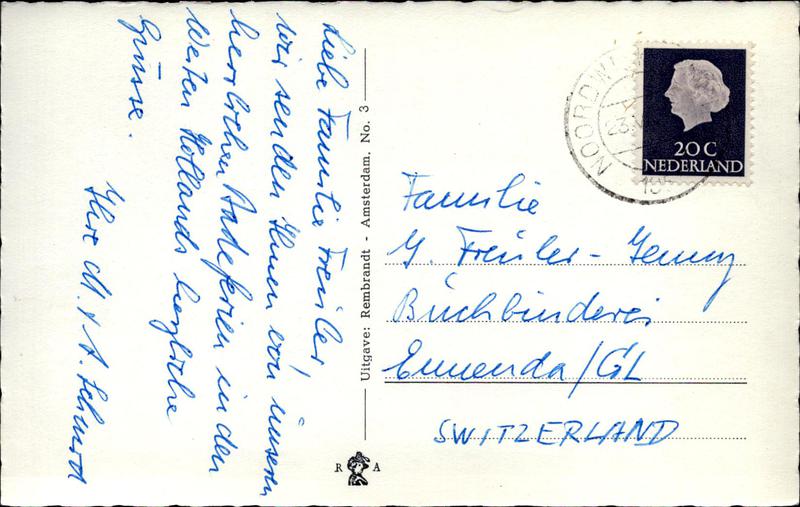 Liebe Familie Freuler,
wir senden Ihnen von unseren
herrlichen Badeferien in den
Weiten Hollands herzliche
Grüsse.
Ihre M. + A. Schmid
Uitgave: Rembrandt - Amsterdam. No. 3
R A
NOORDWI
23
19
20 C
NEDERLAND
Familie
G. Freuler - Jenny
Buchbinderei
Ennenda / GL
SWITZERLAND